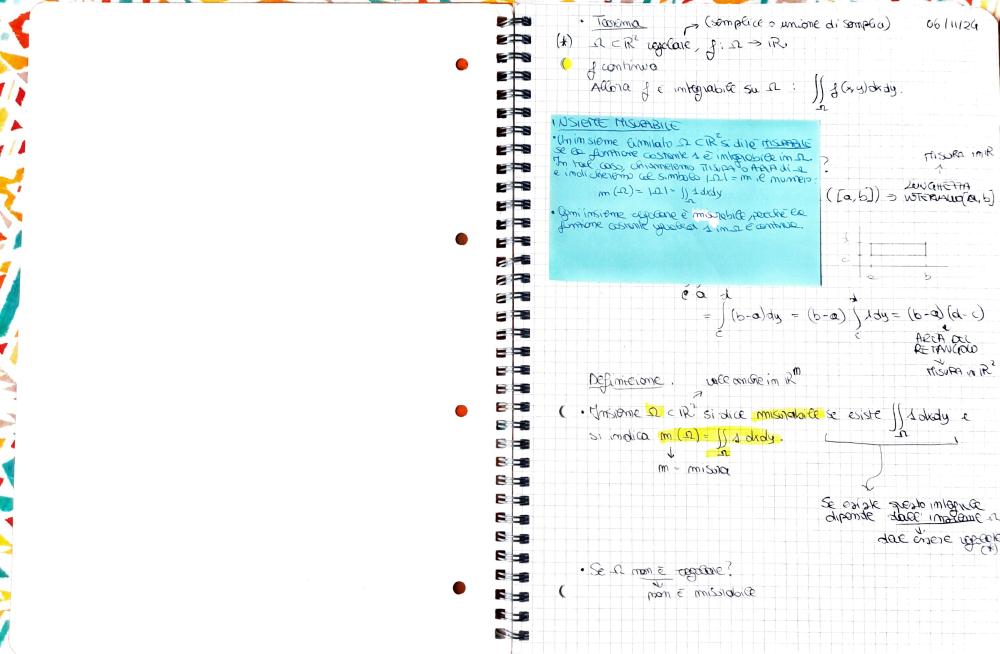 • Teorema (semplice o unione di semplici) 06/11/24
(*) Ω ⊂ ℝ² regolare, f: Ω → ℝ,
f continua
Allora f è integrabile su Ω : ∬_Ω f(x,y)dxdy.
INSIEME MISURABILE
• Un insieme limitato Ω ⊂ ℝ² si dice MISURABILE
se la funzione costante 1 è integrabile in Ω.
In tal caso, chiameremo MISURA o AREA di Ω
e indicheremo col simbolo |Ω| = m il numero:
m(Ω) = |Ω| = ∬_Ω 1 dxdy
• Ogni insieme regolare è misurabile, perché la
funzione costante 1 in Ω è continua.
?
MISURA in ℝ
([a,b]) ⇒ LUNGHEZZA
INTERVALLO [a,b]
d
c
a b
c a
= ∫_c^d (b-a)dy = (b-a) ∫_c^d 1dy = (b-a)(d-c)
AREA DEL
RETTANGOLO
MISURA in ℝ²
Definizione. vale anche in ℝⁿ
• Insieme Ω ⊂ ℝ² si dice misurabile se esiste ∬_Ω 1 dxdy e
si indica m(Ω) = ∬_Ω 1 dxdy.
m = misura
Se esiste questo integrale
dipende dall'insieme Ω
deve essere regolare
(*)
• Se Ω non è regolare?
non è misurabile